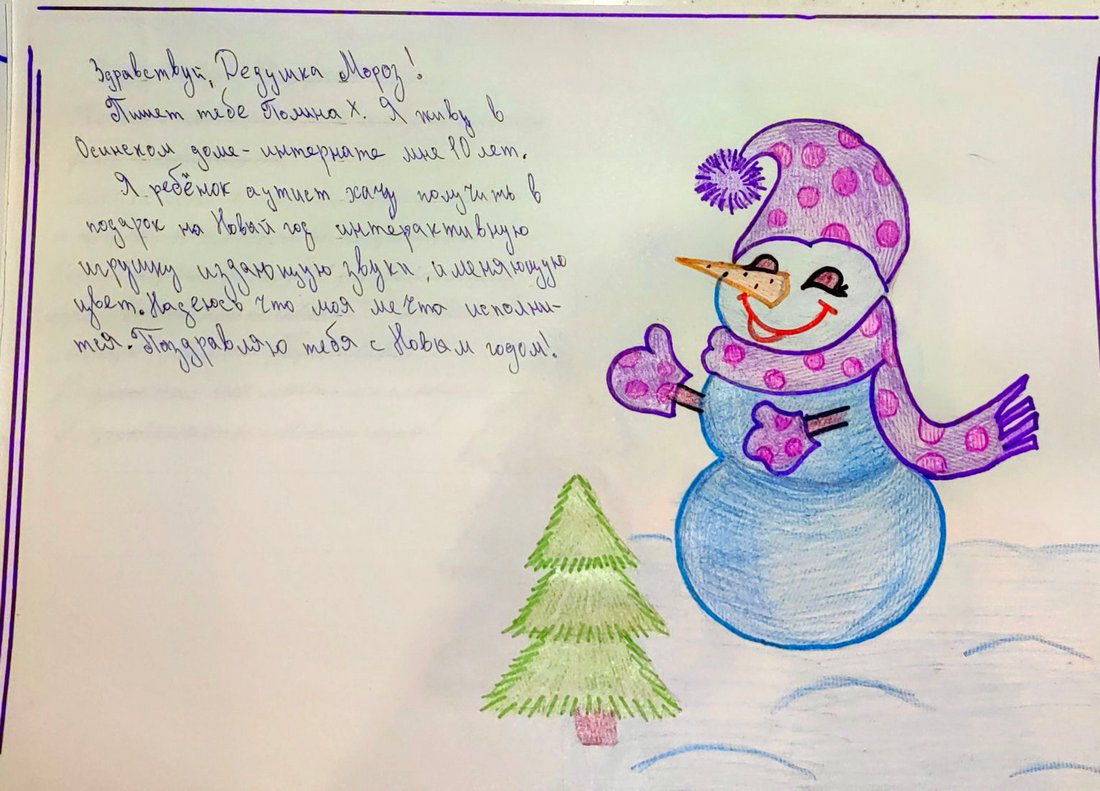 Здравствуй, Дедушка Мороз!
Пишет тебе Полина Х. Я живу в
Осинском доме-интернате мне 10 лет.
Я ребёнок аутист хачу получить в
подарок на Новый год интерактивную
игрушку издающую звуки, и меняющую
цвет. Надеюсь что моя мечта исполни-
тся. Поздравляю тебя с Новым годом!